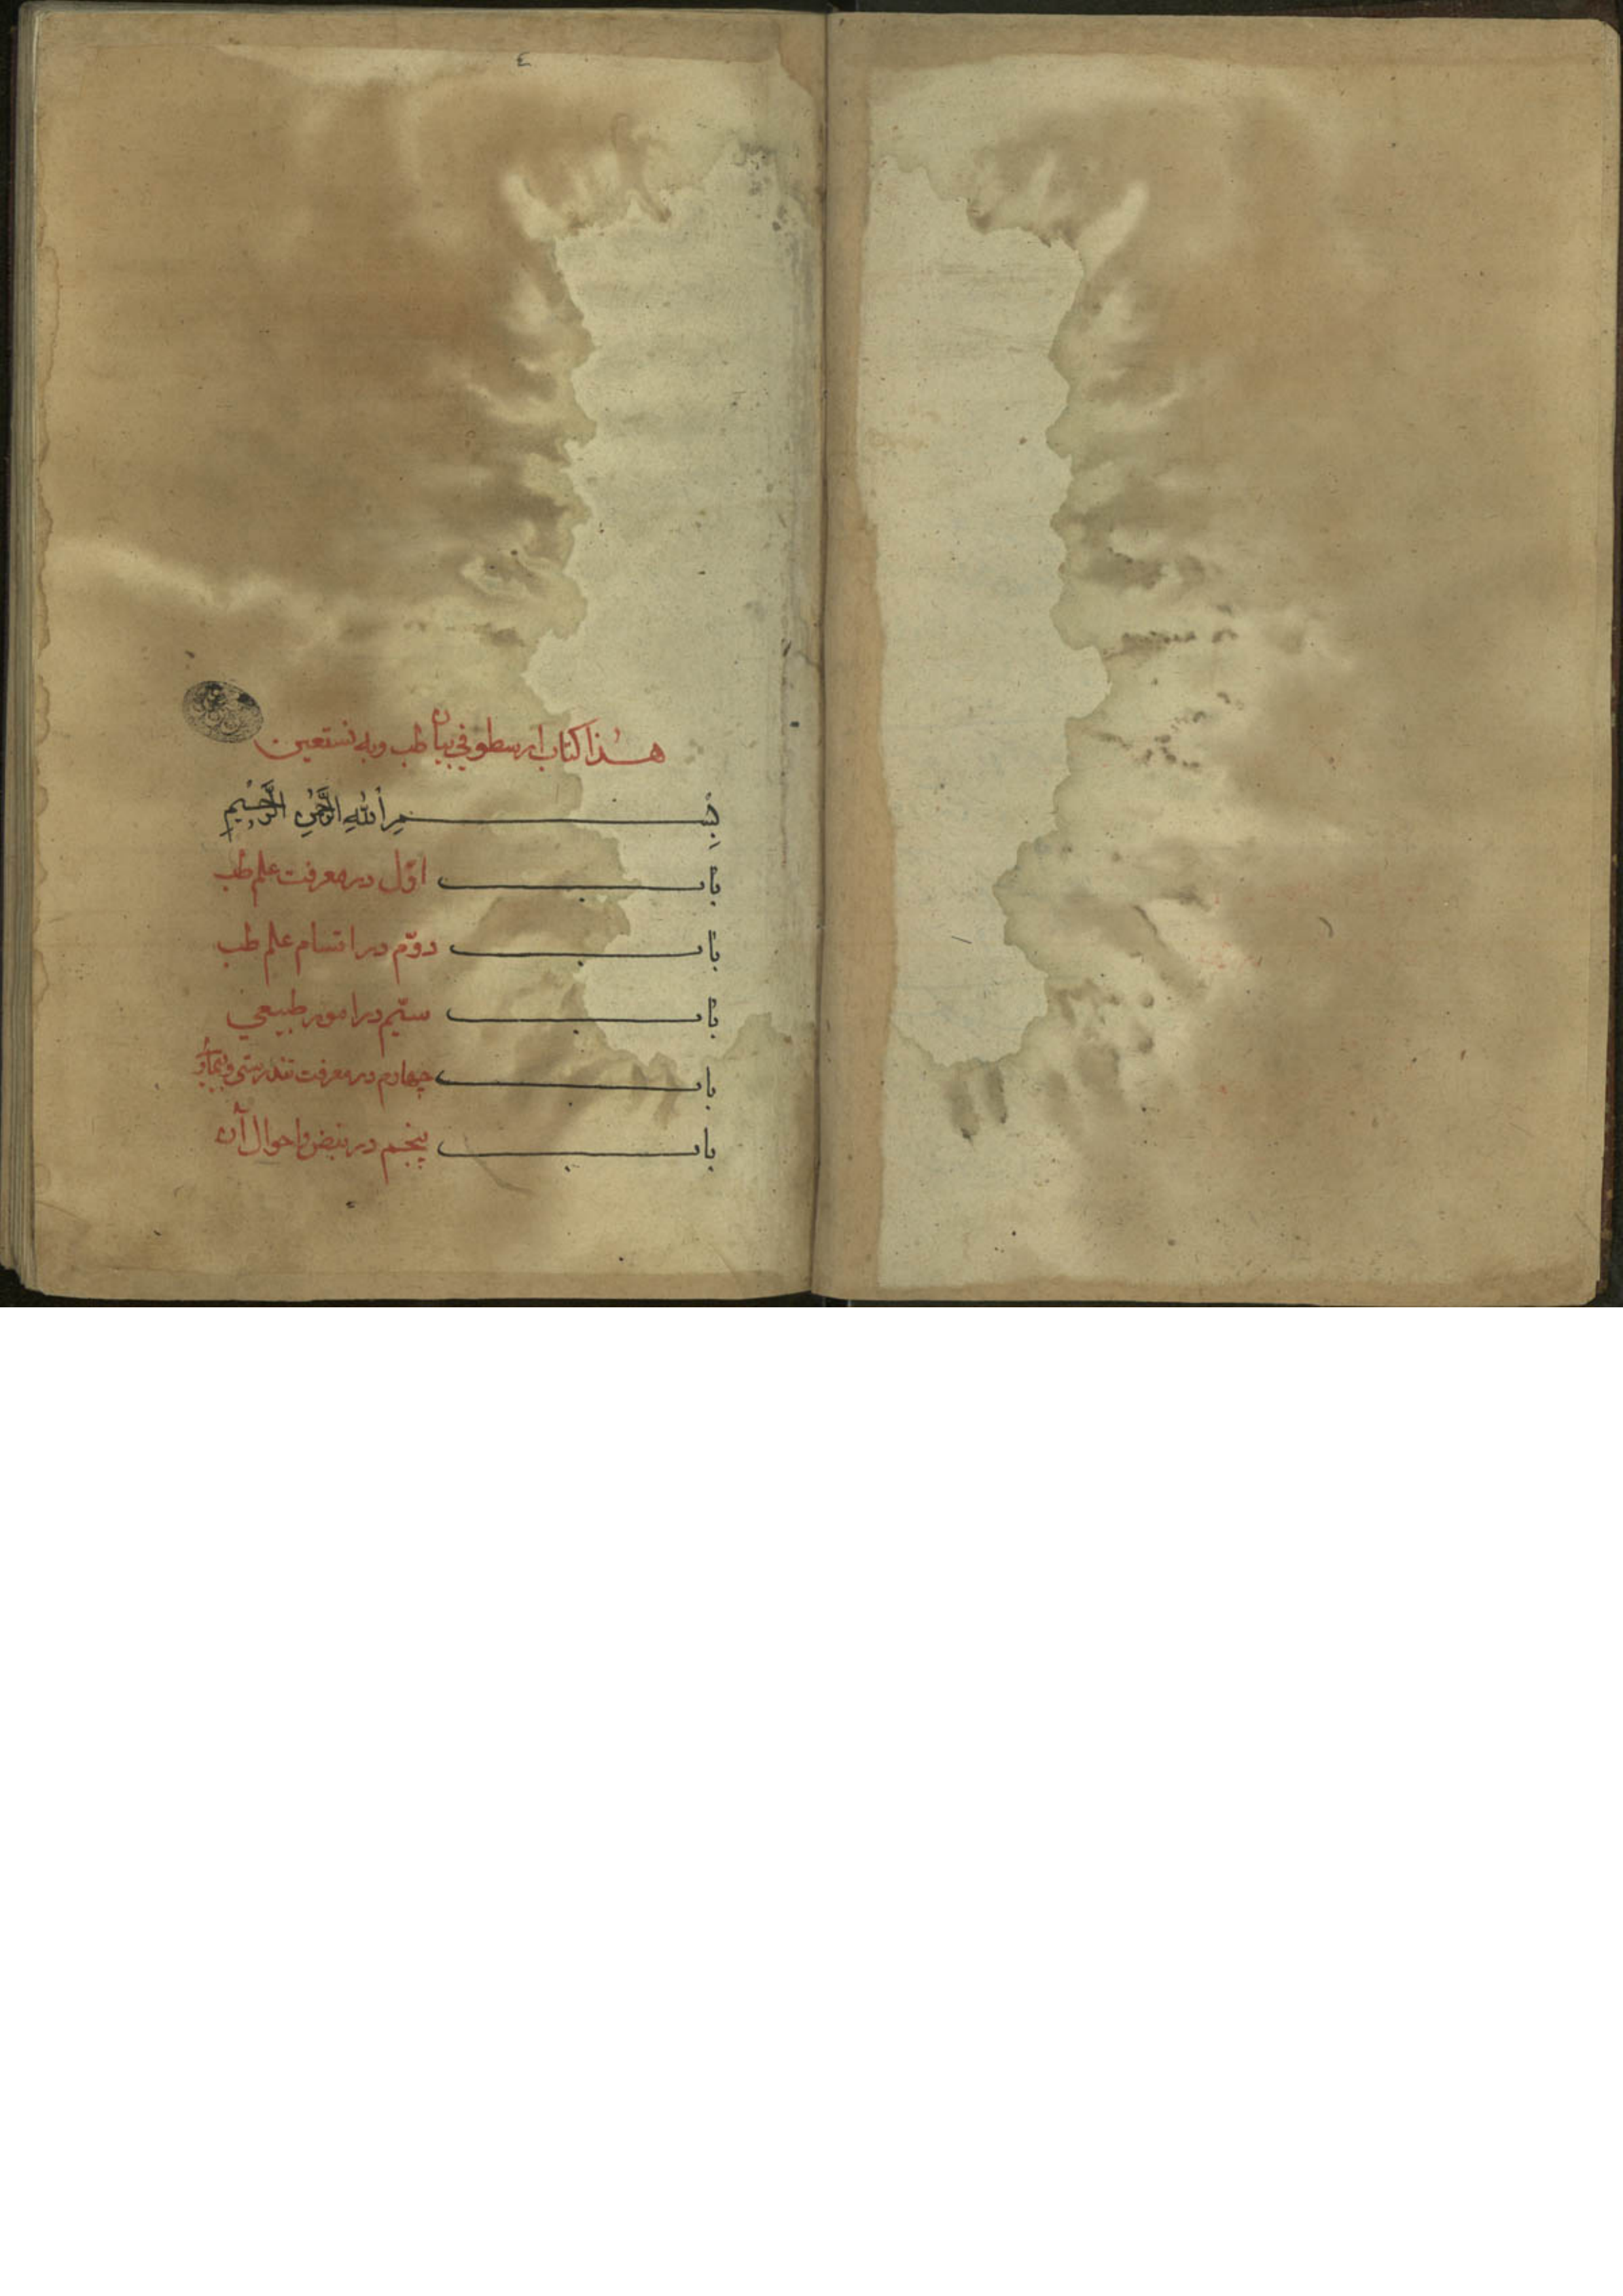 ٤
هذا كتاب ارسطو في بيان طب وبه نستعين
بسم الله الرحمن الرحيم
باب اوّل در معرفت علم طب
باب دوّم در اقسام علم طب
باب سيّم در امور طبيعي
باب چهارم در معرفت تندرستى و
باب پنجم در نبض و احوال آن